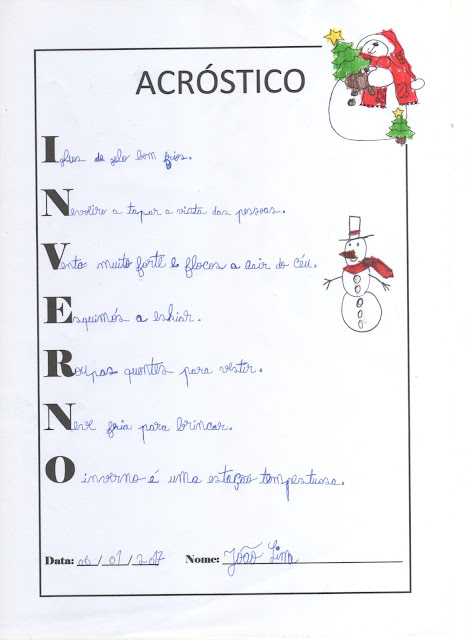 ACRÓSTICO
Iglus de gelo bom frios.
Nevoeiro a tapar a vista das pessoas.
Vento muito forte e flocos a cair do céu.
Esquimós a eskiar.
Roupas quentes para vestir.
Neve fria para brincar.
O inverno é uma estação tempestuosa.
Data: 06/01/2017 Nome: João Lima